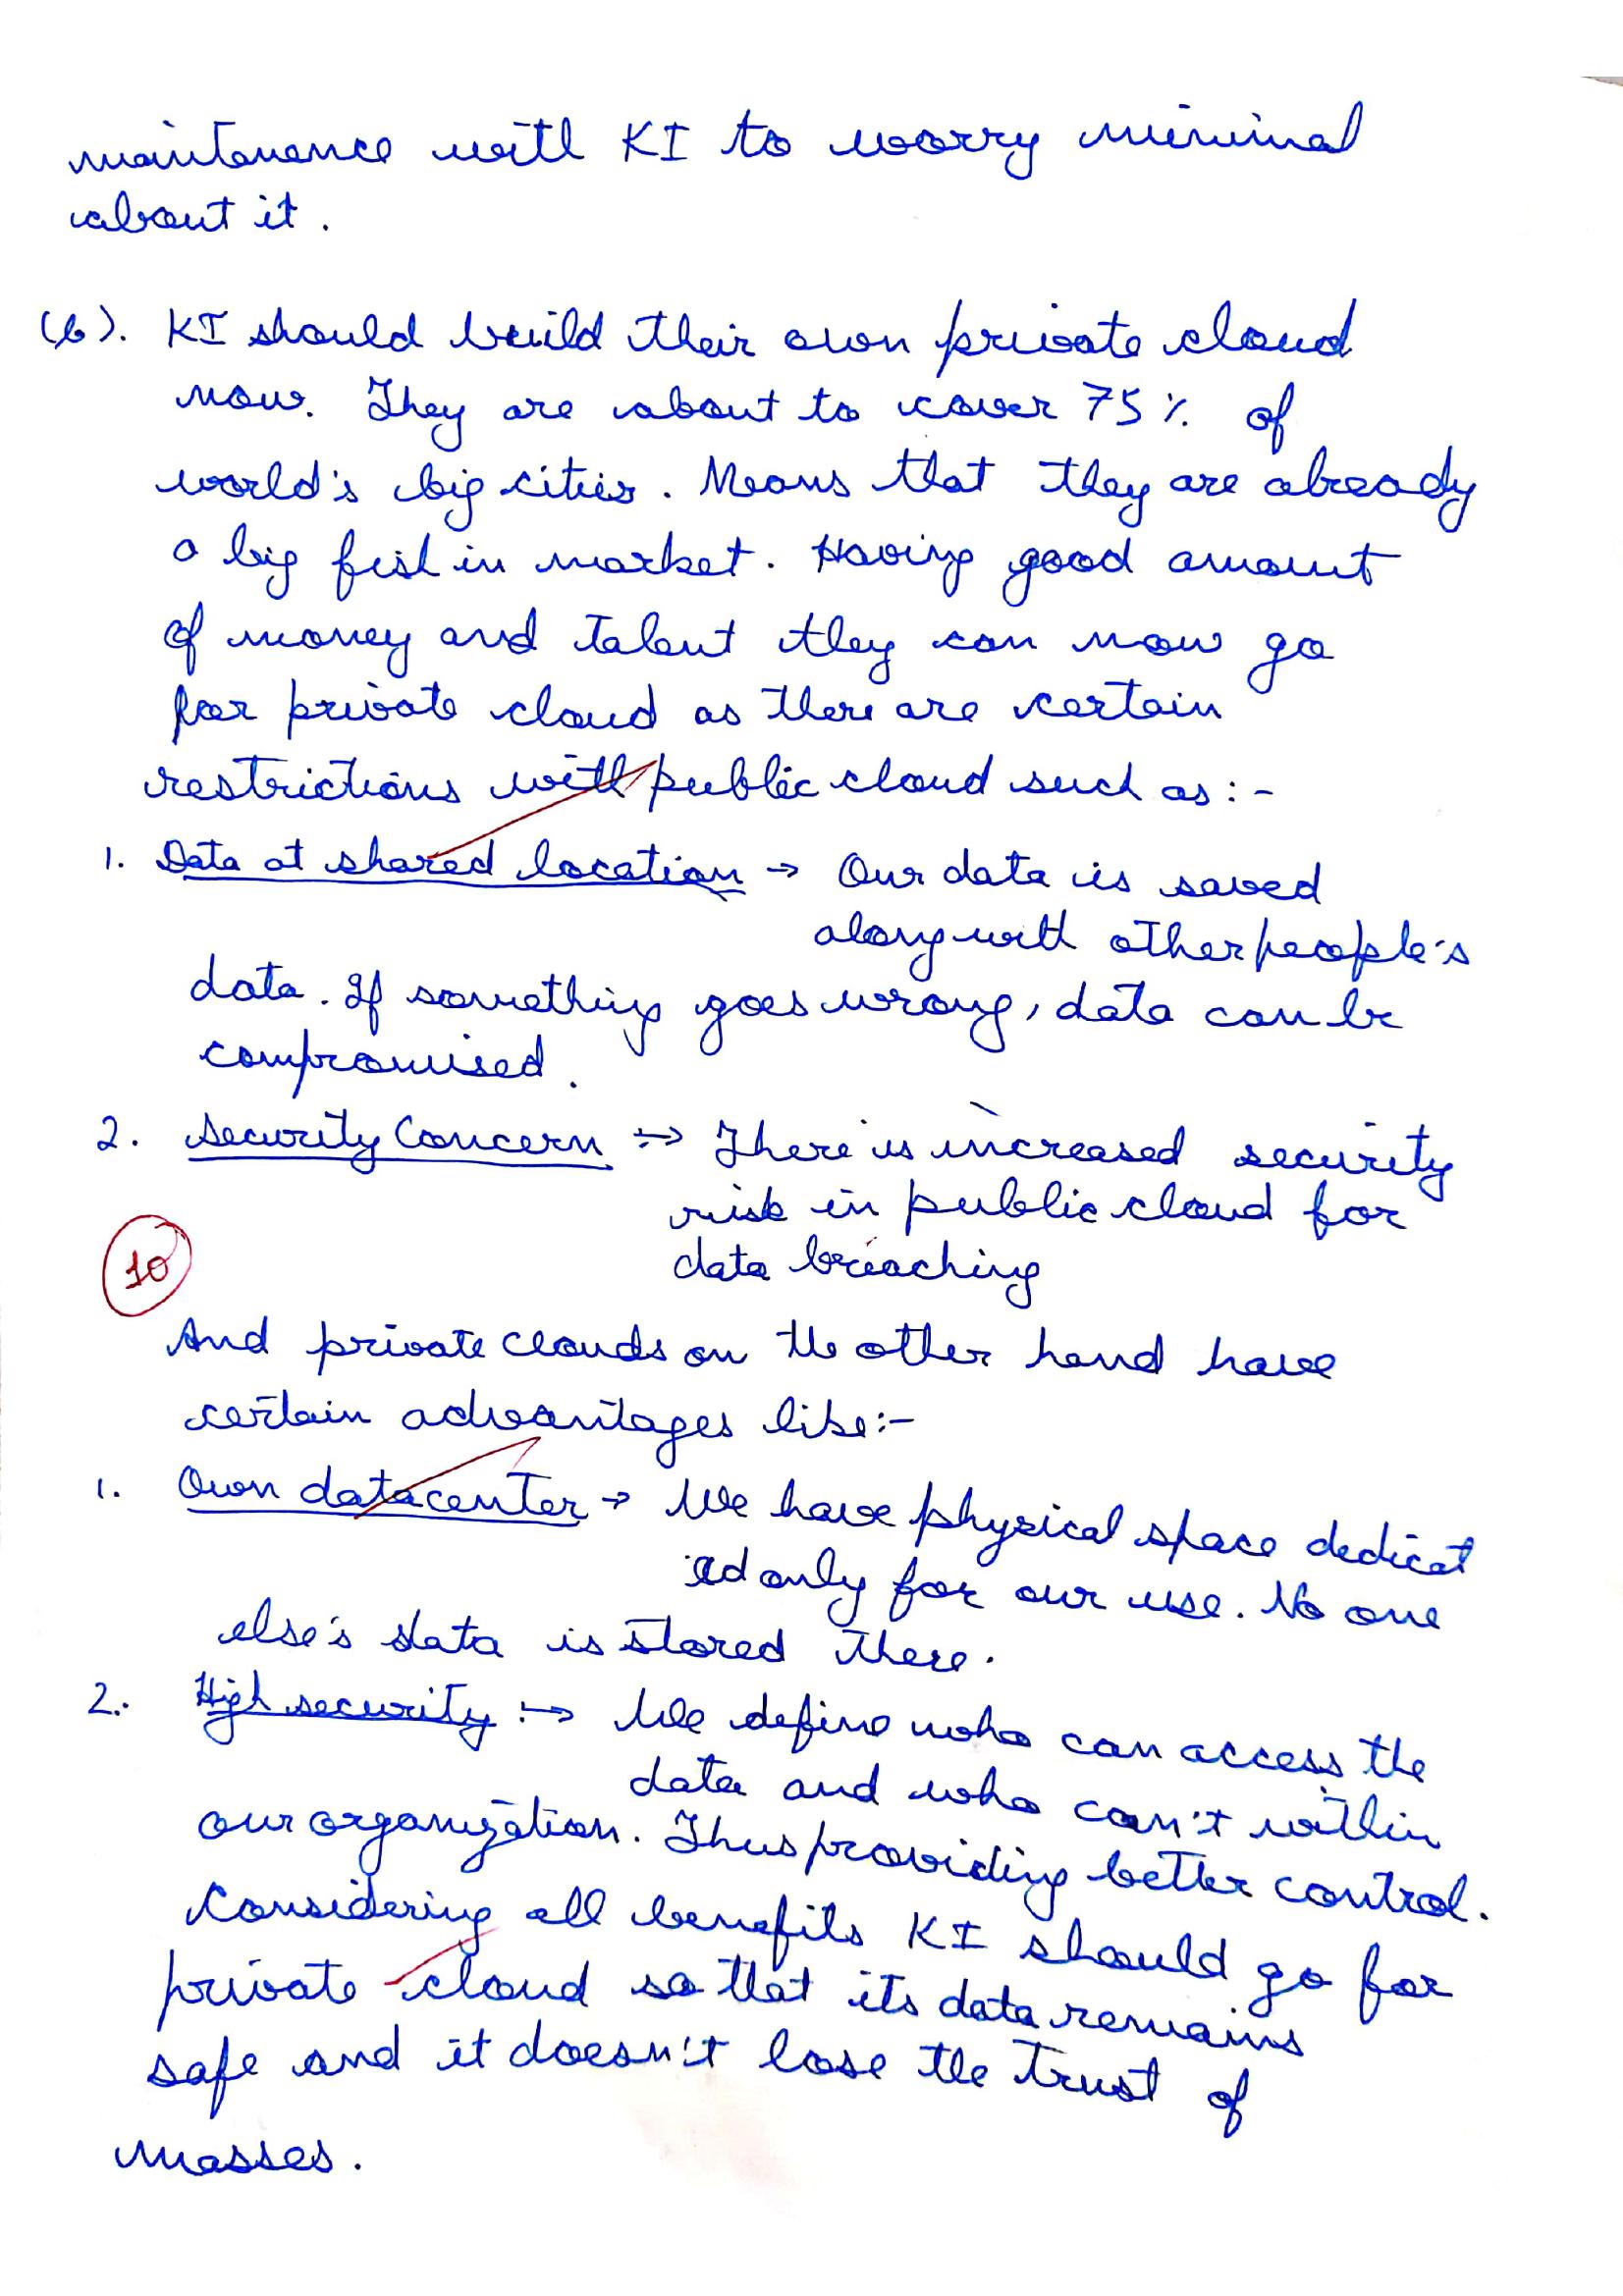 maintenance with KI to worry minimal
about it.
(b). KI should build their own private cloud
now. They are about to cover 75% of
world's big cities. Means that they are already
a big fish in market. Having good amount
of money and talent they can now go
for private cloud as there are certain
restrictions with public cloud such as :-
1. Data at shared location → Our data is saved
along with other people's
data. If something goes wrong, data can be
compromised.
2. Security Concern :→ There is increased security
risk in public cloud for
data breaching
10
And private clouds on the other hand have
certain advantages like:-
1. Own datacenter → We have physical space dedicat
ed only for our use. No one
else's data is stored there.
2. High security :→ We define who can access the
data and who can't within
our organization. Thus providing better control.
Considering all benefits KI should go for
private cloud so that its data remains
safe and it doesn't lose the trust of
masses.